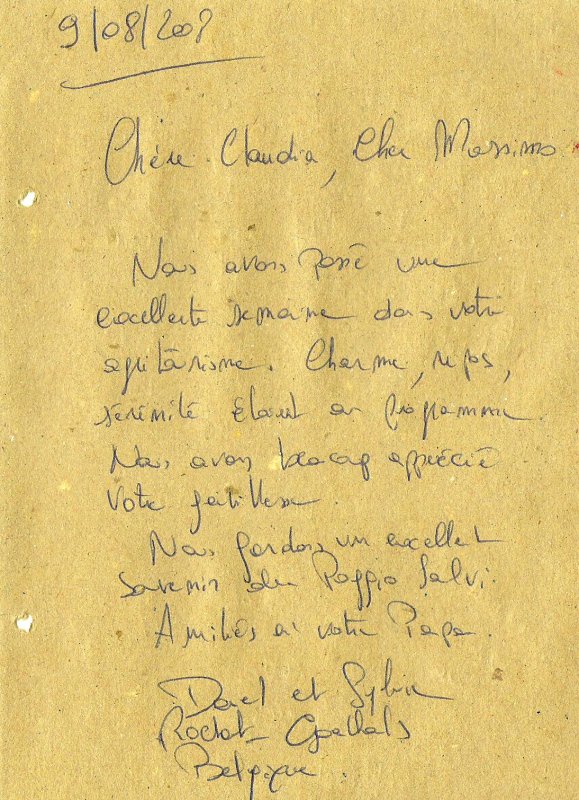 9/08/2008
Chère Claudia, Cher Massimo
Nous avons passé une
excellente semaine dans votre
agriturisme. Charme, repos,
sérénité étaient au programme.
Nous avons beaucoup apprécié
votre gentillesse.
Nous gardons un excellent
souvenir du Poggio Salvi.
Amitiés à votre Papa.
et Sylvie
Belgique.